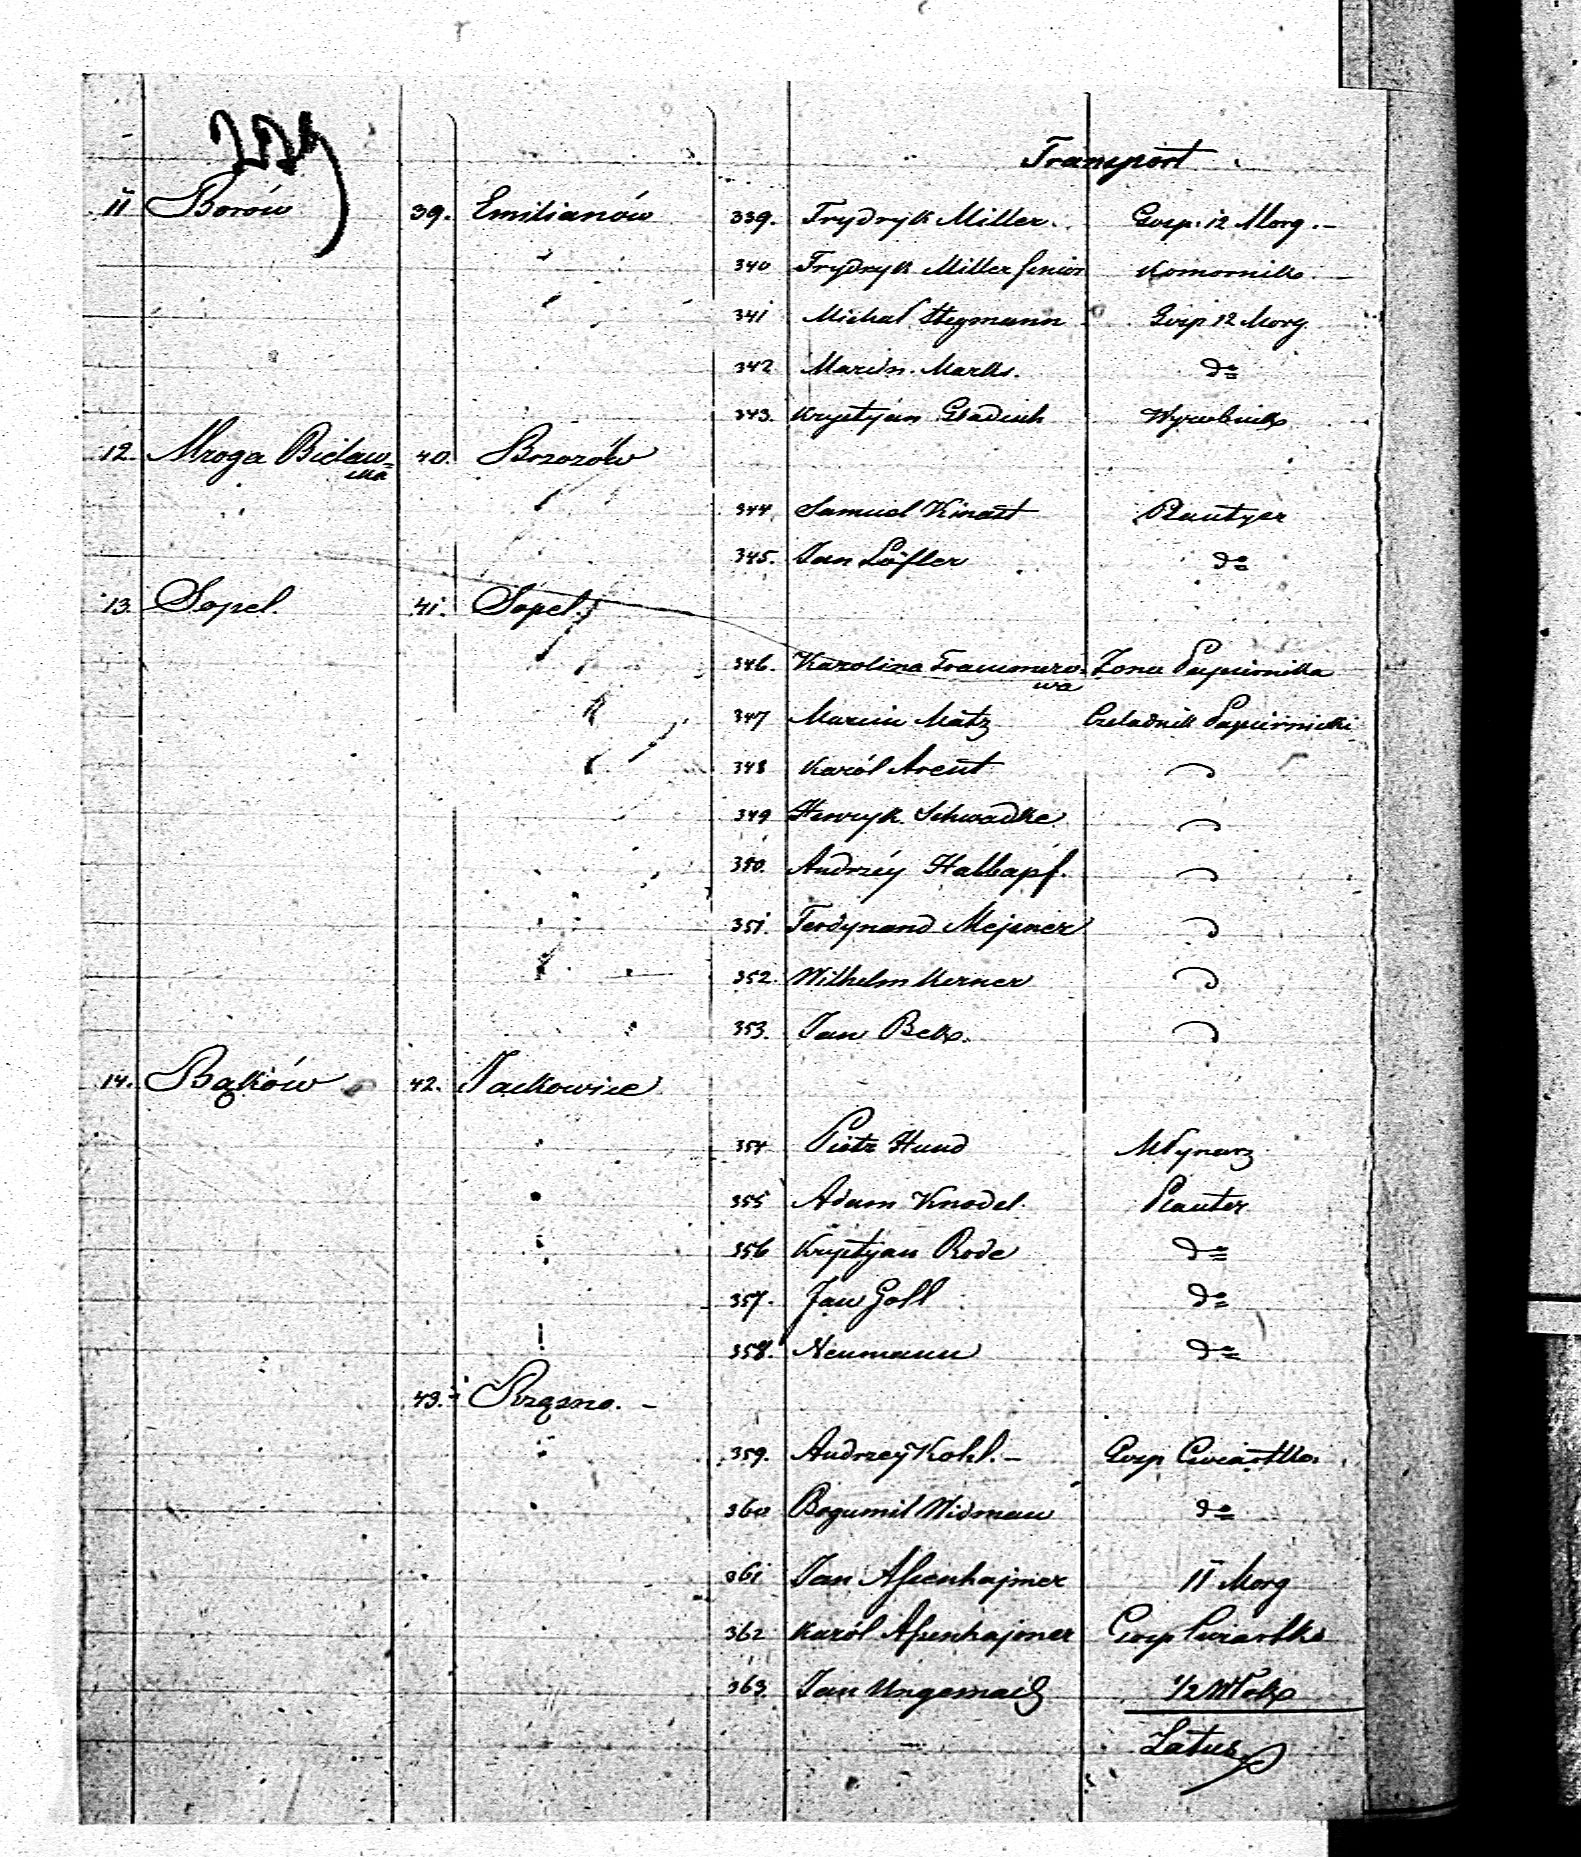 229
Transport
11 Borów 39. Emilianów 339. Frydryk Miller. Gosp: 12 Morg. -
340 Frydryk Miller senior Komornik
341 Michał Hegmann Gosp 12 Morg
342 Marcin Marks. do
343. Krystyan Wyrobnik
12. Mroga Bielaw=
ska 40.
344 Samuel Kinast
345. Jan Löfler do
13. Sopel. 41. Sopel.
346. Karolina Traumero=
wa Żona Papiernika
347 Marcin Matz Czeladnik Papiernicki
348 Karól Arent
349 Henryk Schwadke
350. Andrzéy Halbapf.
351. Ferdynand Mejsner
352. Wilhelm Kerner
353. Jan Bek.
14. Bąków 42. Jackowice
354 Piotr Hund Młynarz
355 Adam Knodel.
356 Krystyan Rode do
357. Jan Goll do
358. Neumann do
43.
359. Andrzey Kohl. - Gosp Cwiartko.
360 Bogumil Widman do
361 Jan Assenhajmer 11 Morg
362 Karól Assenhajmer Gosp Cwiartko
363. Jan Ungemach 1/2 Włok
Latus